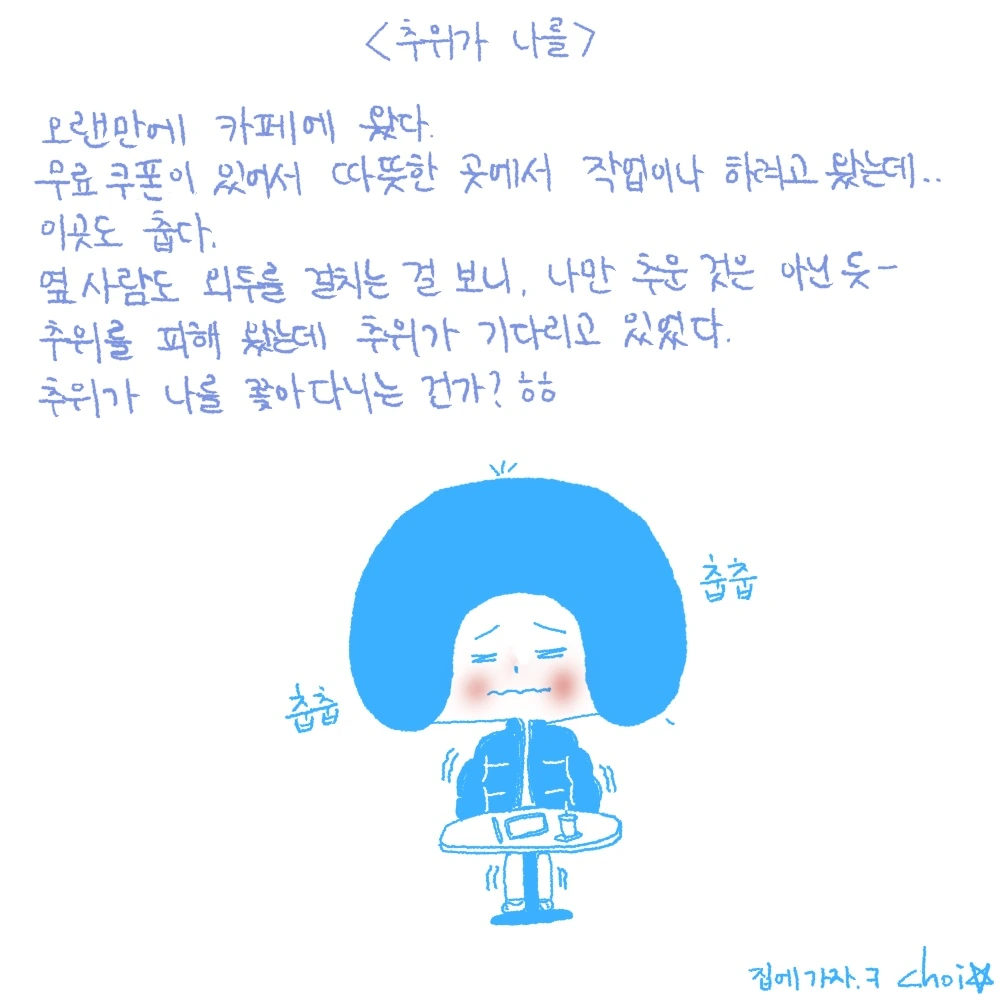 <추위가 나를>
오랜만에 카페에 왔다.
무료쿠폰이 있어서 따뜻한 곳에서 작업이나 하려고 왔는데..
이곳도 춥다.
옆 사람도 외투를 걸치는 걸 보니, 나만 추운 것은 아닌 듯-
추위를 피해 왔는데 추위가 기다리고 있었다.
추위가 나를 쫓아다니는 건가? ㅎㅎ
춥춥
춥춥
집에가자.ㅋ choi☆